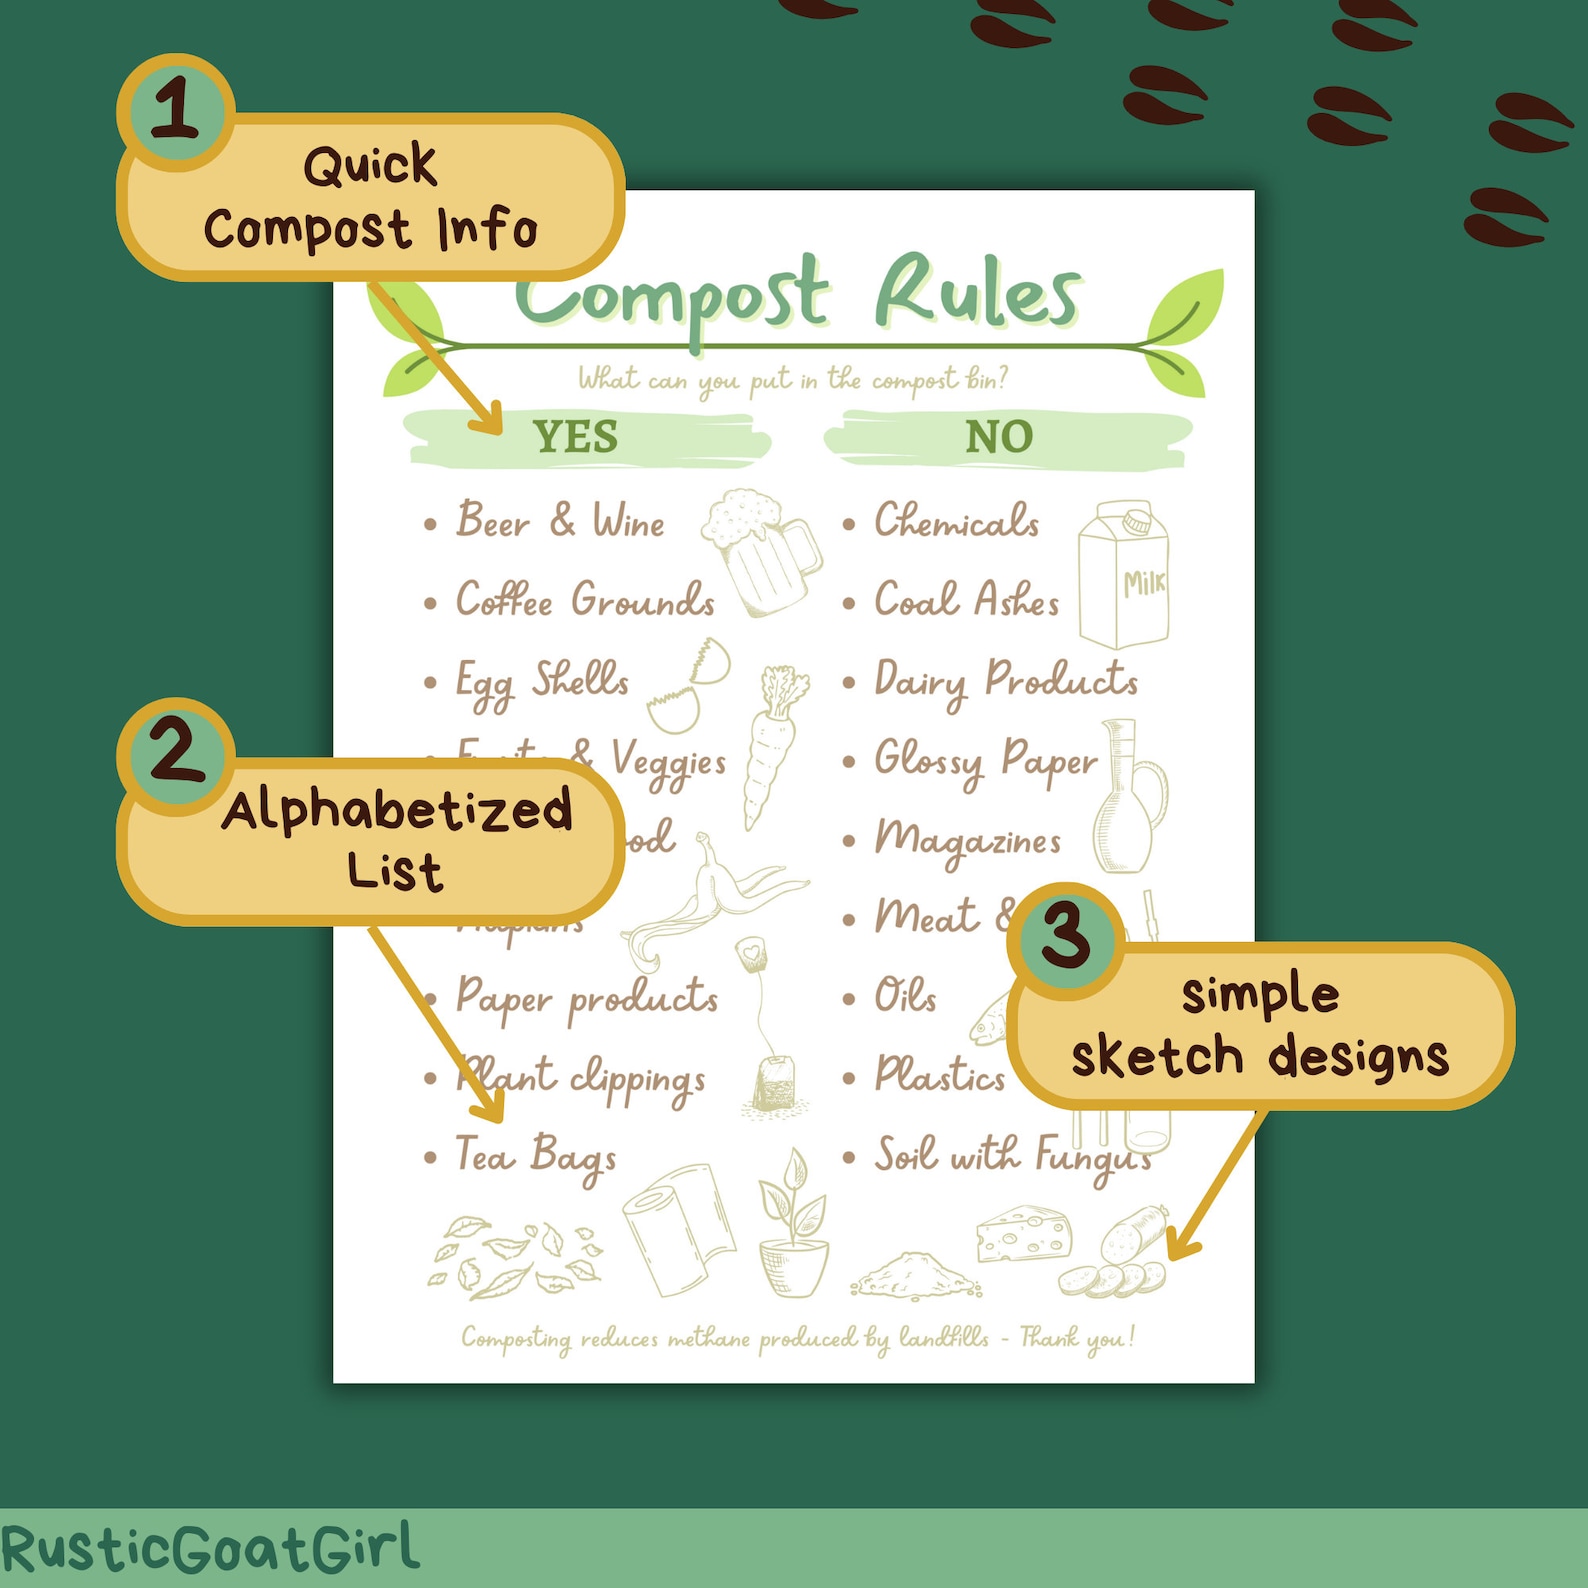 1
Quick
Compost Info
Compost Rules
What can you put in the compost bin?
YES
NO
Beer & Wine
Coffee Grounds
Egg Shells
& Veggies
Paper products
Plant clippings
Tea Bags
Chemicals
Coal Ashes
Dairy Products
Glossy Paper
Magazines
Meat &
Oils
Plastics
Soil with Fungus
Milk
2
Alphabetized
List
3
simple
sketch designs
Composting reduces methane produced by landfills - Thank you!
RusticGoatGirl